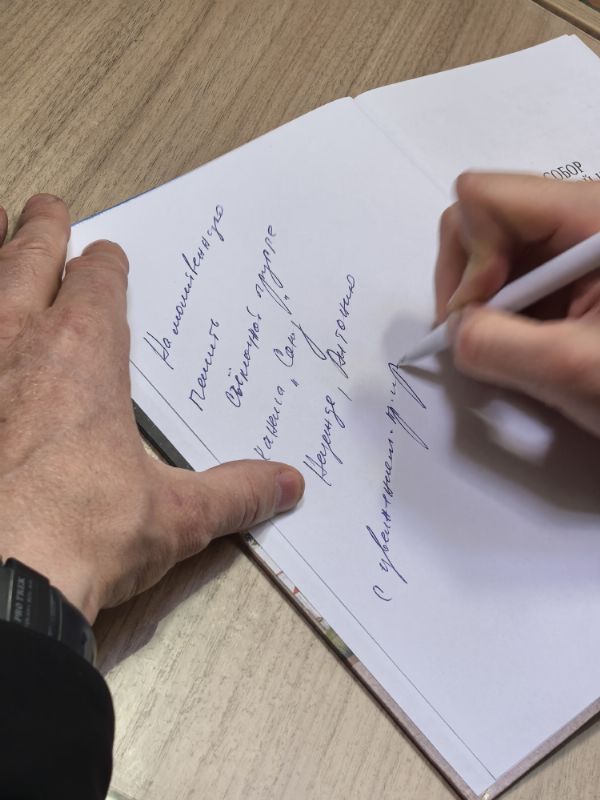 На молитвенную
память
съёмочной группе
канала „Союз"
Надежде, Антонию
с уважением
СОБОР
PRO TREK